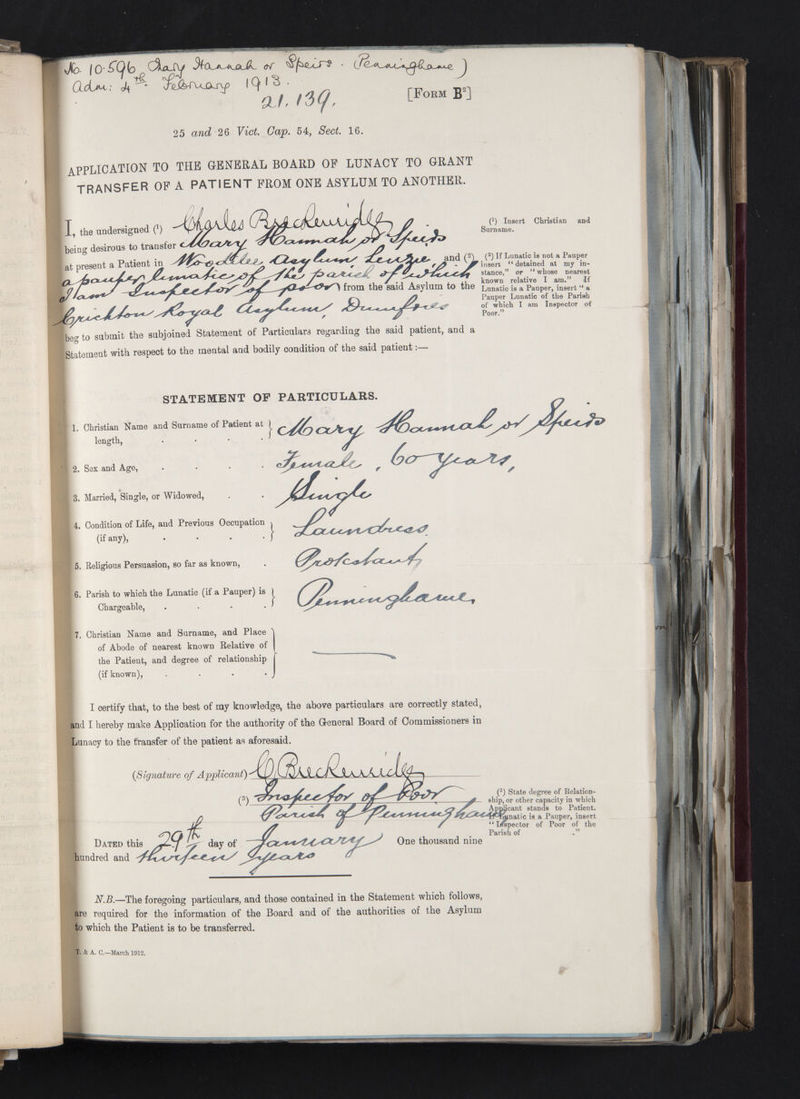 No. 10.596 Mary Hannah or Speirs. (Penninghame)
Adm: 4th. February 1913.
21,139.
[FORM B²]
25 and 26 Vict. Cap. 54, Sect. 16.
APPLICATION TO THE GENERAL BOARD OF LUNACY TO GRANT
TRANSFER OF A PATIENT FROM ONE ASYLUM TO ANOTHER.
I, the undersigned (¹) Charles Breckenridge
(¹) Insert Christian and
Surname.
being desirous to transfer Mary Hannah or Speirs
at present a Patient in Woodilee Asylum Lenzie, and (²)
a pauper lunatic of the parish of which
I am Inspector of poor) from the said Asylum to the
Crichton Royal Asylum, Dumfries
(²) If Lunatic is not a Pauper
insert "detained at my in-
stance," or "whose nearest
known relative I am." If
Lunatic is a Pauper, insert "a
Pauper Lunatic of the Parish
of which I am Inspector of
Poor."
beg to submit the subjoined Statement of Particulars regarding the said patient, and a
Statement with respect to the mental and bodily condition of the said patient:—
STATEMENT OF PARTICULARS.
1. Christian Name and Surname of Patient at length, Mary Hannah or Speirs
2. Sex and Age, Female, 60 years,
3. Married, Single, or Widowed, Single
4. Condition of Life, and Previous Occupation (if any), Laundress.
5. Religious Persuasion, so far as known, Protestant
6. Parish to which the Lunatic (if a Pauper) is Chargeable, Penninghame,
7. Christian Name and Surname, and Place
of Abode of nearest known Relative of
the Patient, and degree of relationship
(if known), —
I certify that, to the best of my knowledge, the above particulars are correctly stated,
and I hereby make Application for the authority of the General Board of Commissioners in
Lunacy to the transfer of the patient as aforesaid.
(Signature of Applicant) C Breckenridge
(³) Inspector of Poor
Parish of Penninghame
(³) State degree of Relation-
ship, or other capacity in which
Applicant stands to Patient.
If Lunatic is a Pauper, insert
"Inspector of Poor of the
Parish of ."
DATED this 29th day of January One thousand nine
hundred and thirteen years
N.B.—The foregoing particulars, and those contained in the Statement which follows,
are required for the information of the Board and of the authorities of the Asylum
to which the Patient is to be transferred.
T. & A. C.—March 1912.